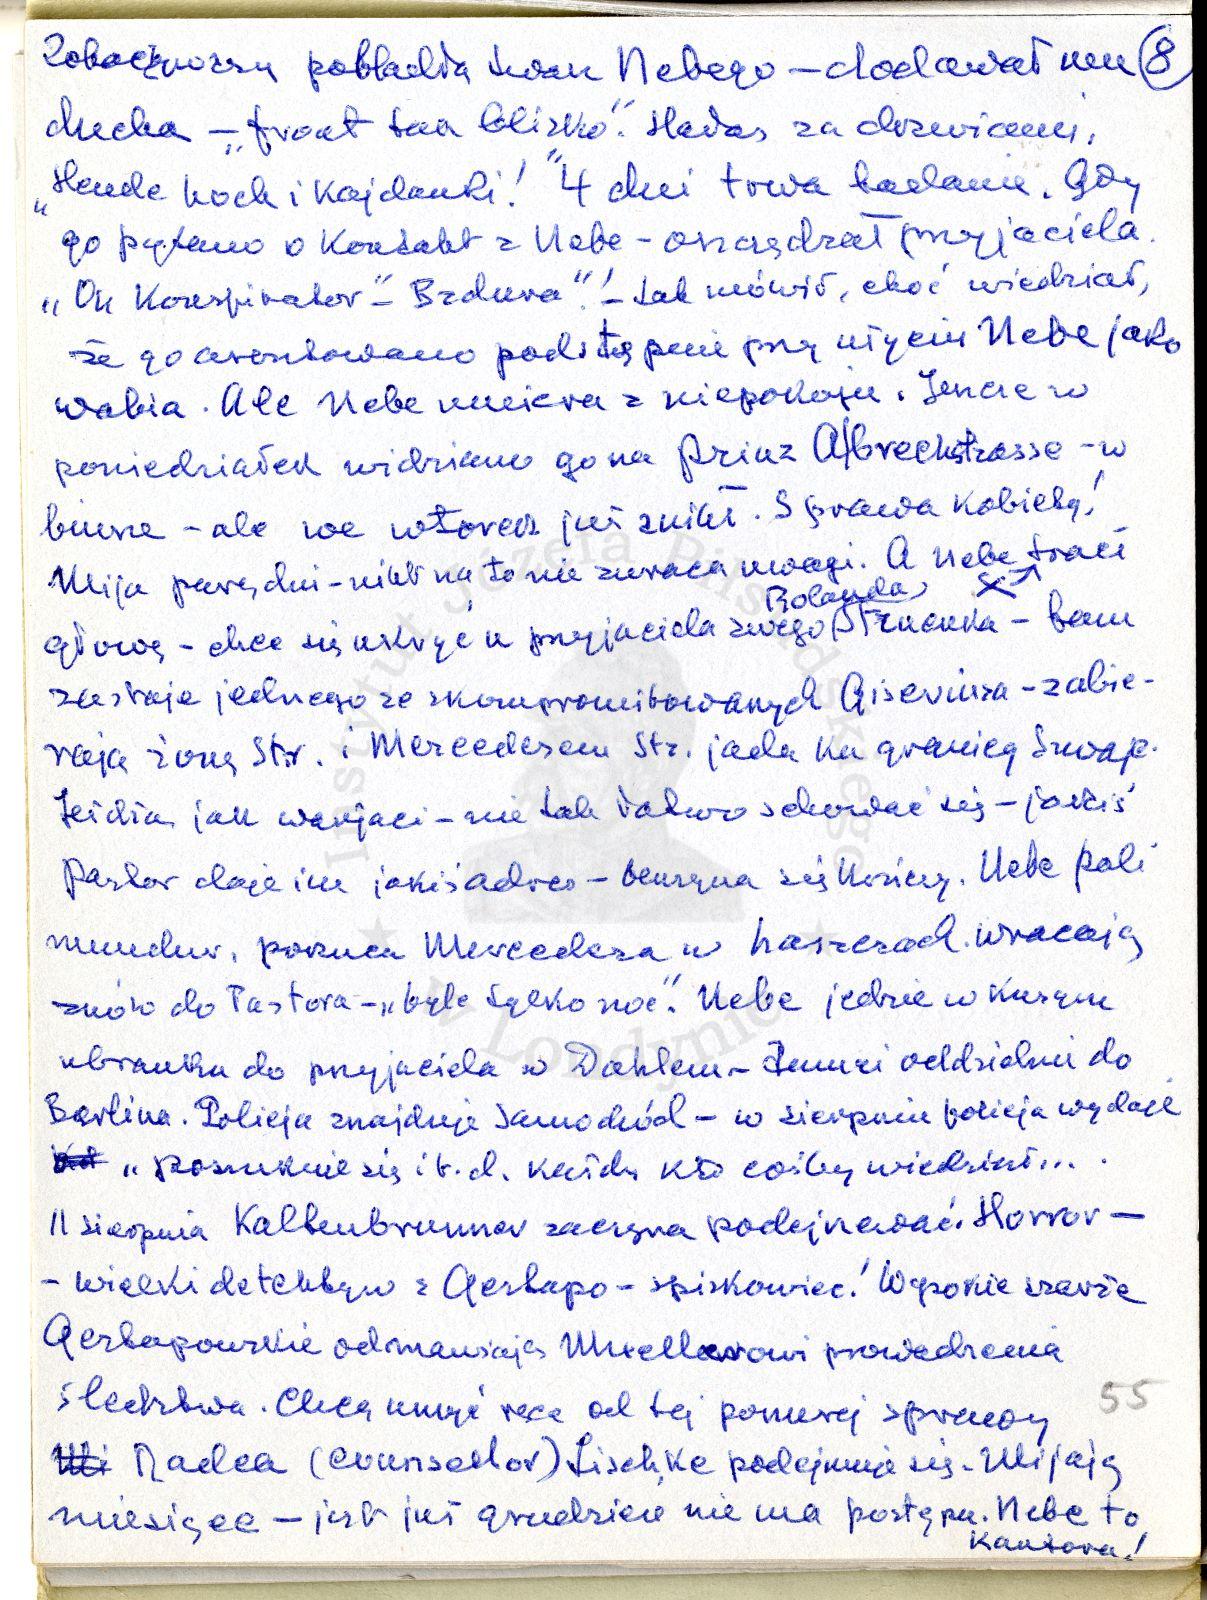 Zobaczywszy pobladłą twarz Nebego – dodawał mu 8
ducha – „front tak blisko”. Hałas za drzwiami,
„Hende hoch i Kajdanki!” 4 dni trwa badanie. Gdy
go pytano o Kontakt z Nebe – oszczędzał przyjaciela.
„On Konspirator” – Bzdura”! – tak mówił, choć wiedział,
że go aresztowano podstępnie przy użyciu Nebe jako
wabia. Ale Nebe umiera z niepokoju. Jeszcze w
poniedziałek widziano go na Prinz Albrechtstrasse – w
biurze – ale we wtorek już znikł. Sprawa Kobiety!
Mija parę dni – nikt na to nie zwraca uwagi. A Nebe traci
Rolanda
głowę – chce się ukryć u przyjaciela swego Struenka – tam
zastaje jednego ze skompromitowanych Giseviusa – zabie-
rają żonę Str. i Mercedesem Str. jadą ku granicy Szwajc.
Jeżdżą jak wariaci – nie tak łatwo schować się – jakiś
Pastor daje im jakiś adres – benzyna się Kończy. Nebe pali
mundur, porzuca Mercedesa w haszczach. Wracają
znów do Pastora – „byle tylko noc”. Nebe jedzie w Kusym
ubranku do przyjaciela w Dahlem – tamci oddzielnie do
Berlina. Policja znajduje samochód – w sierpniu policja wydaje
„poszukuje się i t.d. każdy kto coś by wiedział...
11 sierpnia Kaltenbrunner zaczyna podejrzewać. Horror –
– wielki detektyw z Gestapo – spiskowiec! Wysokie szarże
Gestapowskie odmawiają Muellerowi prowadzenia
śledztwa. Chcą umyć ręce od tej ponurej sprawy
55
Radca (counsellor) Lischke podejmuje się. Mijają
miesiące – jest już grudzień nie ma postępu. Nebe to
Kantora!
Instytut Józefa Piłsudskiego
w Londynie